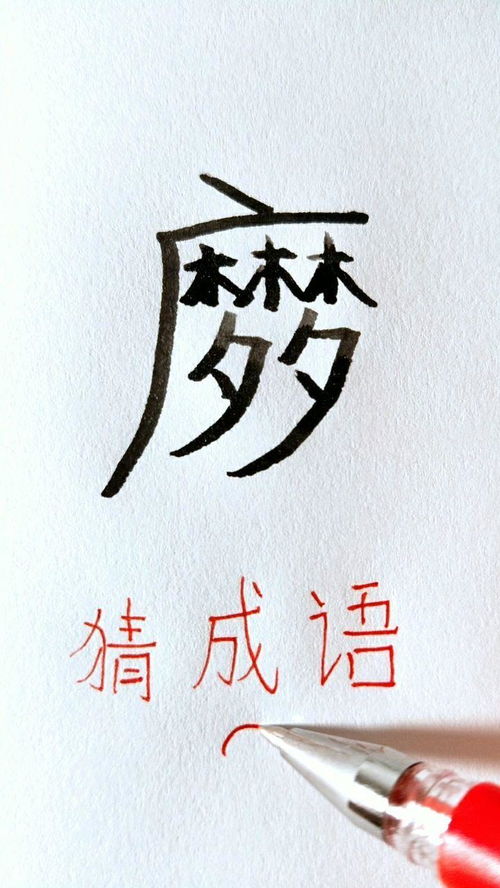 猜成语